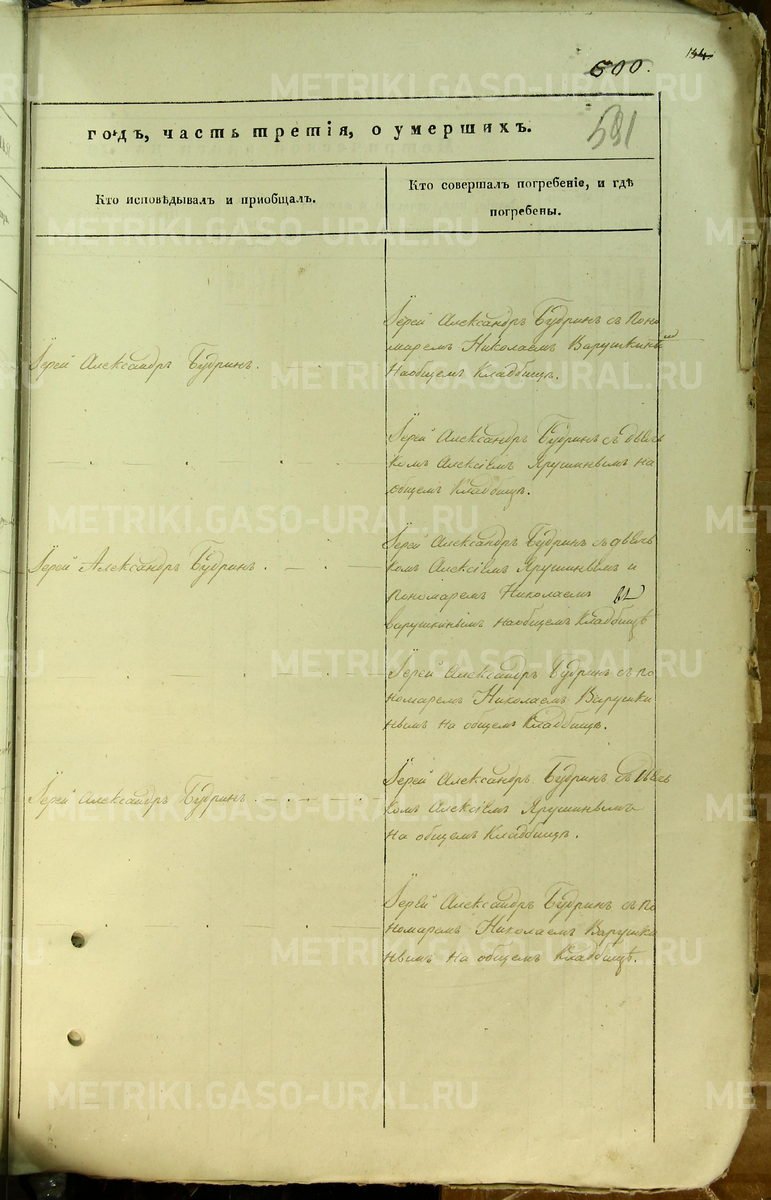 600.
134.
годъ, часть третія, о умершихъ.
591
Кто исповѣдывалъ и приобщалъ.
Кто совершалъ погребеніе, и гдѣ
погребены.
Іерей Александръ Будринъ.
Іерей Александръ Будринъ съ Поно
маремъ Николаемъ Варушкинымъ
На общемъ Кладбищѣ.
Іерей Александръ Будринъ съ дьяч
комъ Алексіемъ Ярушинымъ на
общемъ Кладбищѣ.
Іерей Александръ Будринъ.
Іерей Александръ Будринъ съ дьяч
комъ Алексіемъ Ярушинымъ и
пономаремъ Николаемъ
Варушкинымъ на общемъ Кладбищѣ
Іерей Александръ Будринъ съ по
номаремъ Николаемъ Варушки
нымъ на общемъ Кладбищѣ.
Іерей Александръ Будринъ.
Іерей Александръ Будринъ съ Дьяч
комъ Алексіемъ Ярушинымъ
на общемъ Кладбищѣ.
Іерей Александръ Будринъ съ по
номаремъ Николаемъ Варушки
нымъ на общемъ Кладбищѣ.
METRIKI.GASO-URAL.RU